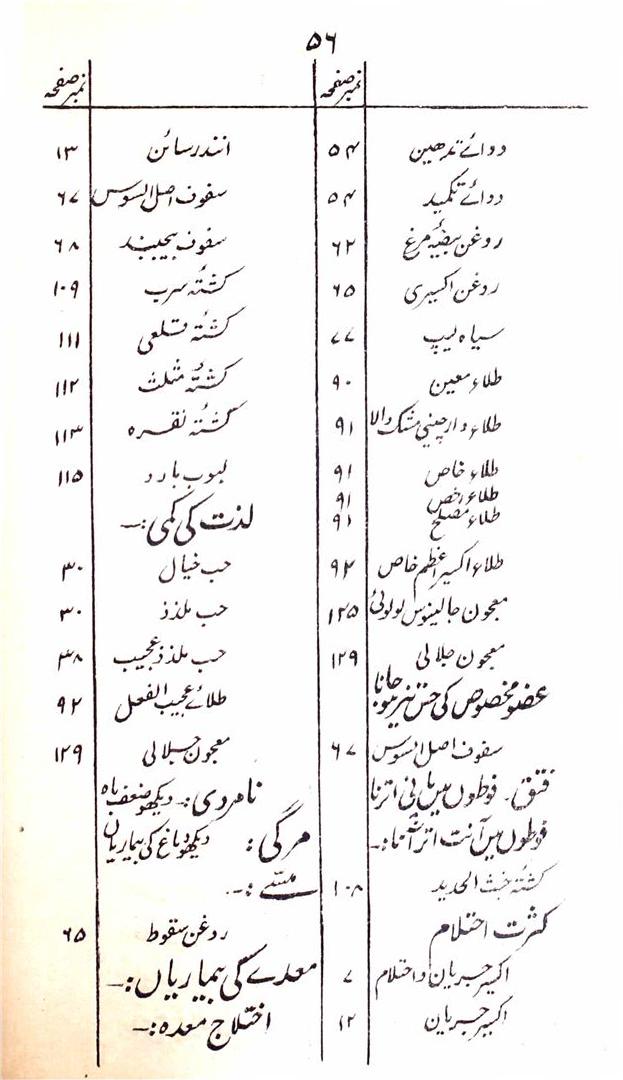 ۵۶
نمبر صفحہ
دوائے تدھین ۵۴
دوائے تکمید ۵۴
روغن بیضۂ مرغ ۶۲
روغن اکسیری ۶۵
سیاہ لیپ ۷۷
طلاء معین ۹۰
طلاء دارچینی مشک والا ۹۱
طلاء خاص ۹۱
طلاء اخص ۹۱
طلاء مصلح ۹۱
طلاء اکسیر اعظم خاص ۹۲
معجون جالینوس لولوئی ۱۲۵
معجون جلالی ۱۲۹
عضو مخصوص کی حس تیز ہو جانا
سفوف اصل السوس ۶۷
فتق۔ فوطوں میں پانی اترنا
فوطوں میں آنت اتر آنا:۔
کشتۂ خبث الحدید ۱۰۸
کثرت احتلام
اکسیر جریان و احتلام ۷
اکسیر جریان ۱۲
نمبر صفحہ
انندرسائن ۱۳
سفوف اصل السوس ۶۷
سفوف بیجبند ۶۸
کشتۂ سرب ۱۰۹
کشتۂ قلعی ۱۱۱
کشتۂ مثلث ۱۱۲
کشتۂ نقرہ ۱۱۳
لبوب بارد ۱۱۵
لذت کی کمی:۔
حب خیال ۳۰
حب ملذذ ۳۰
حب ملذذ عجیب ۳۸
طلائے عجیب الفعل ۹۲
معجون جلالی ۱۲۹
نامردی:۔ دیکھو ضعف باہ
مرگی: دیکھو دماغ کی بیماریاں
مسّے:۔
روغن سقوط ۶۵
معدے کی بیماریاں:۔
اختلاج معدہ:۔